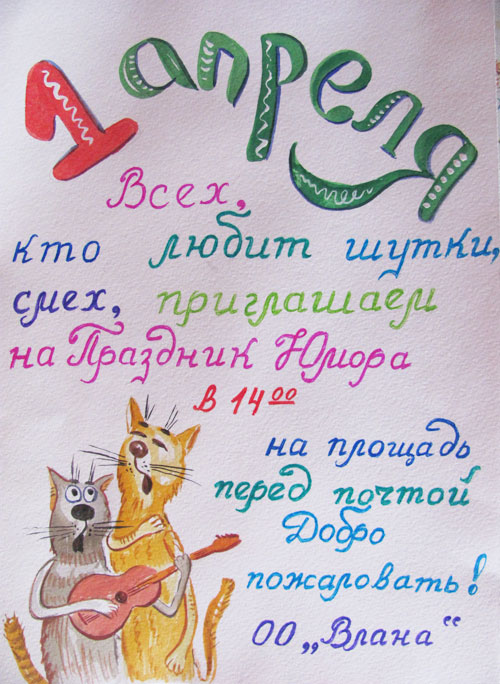 1 апреля
Всех,
кто любит шутки,
смех, приглашаем
на Праздник Юмора
в 14 00
на площадь
перед почтой
Добро
пожаловать!
ОО „Влана"